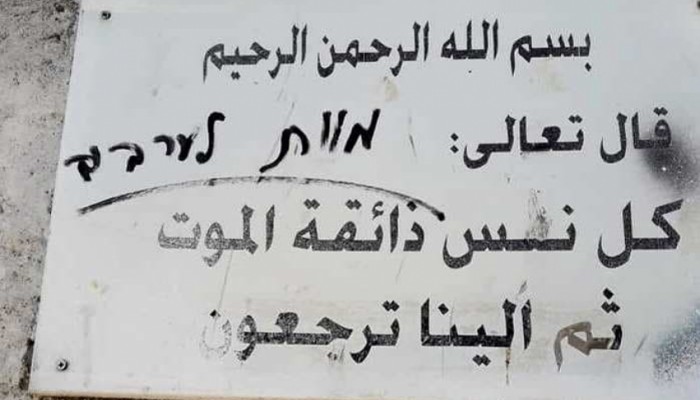 بسم الله الرحمن الرحيم
قال تعالى:
מוות לערבים
كل نفس ذائقة الموت
ثم الينا ترجعون